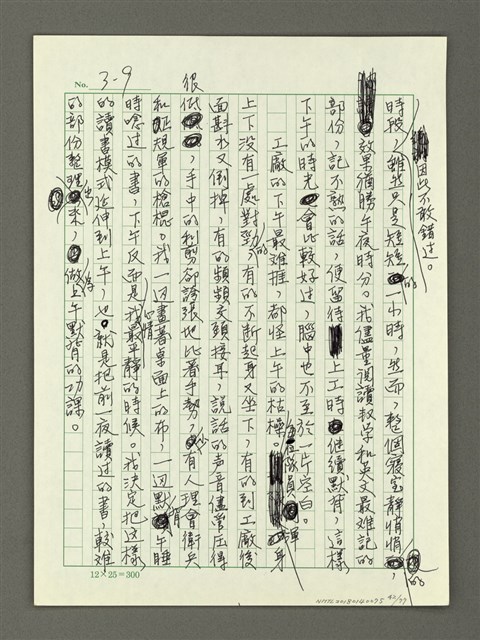 No. 3-9
因此不敢錯過。
時段，雖然只是短短的一小時，然而，整個寢室靜悄悄的，
效果猶勝午夜時分。我儘量週讀数学和英文最难記的
部份，記不熟的話，便留待上工時继續默背，這樣，
下午的時光會比較好过，腦中也不至於一片空白。
工廠的下午最难捱，都怪上午的枯燥。每位隊員渾身
上下没有一處對勁，有的不断起身又坐下，有的到工廠後
面斟水又倒掉，有的頻頻交頭接耳，説話的声音儘管压得
很低，手中的利剪卻誇張地比着手勢，少有人理會衛兵
和正規軍的槍棍。我一边畫著桌面上的布，一边默背午睡
時唸过的書，下午反而是我心情最平靜的時候。我決定把这樣
的讀書模式延伸到上午，也就是把前一夜讀过的書，較难
的部份整理出來，做得上午默背的功課。
12×25=300
NMTL20180140075 42/77